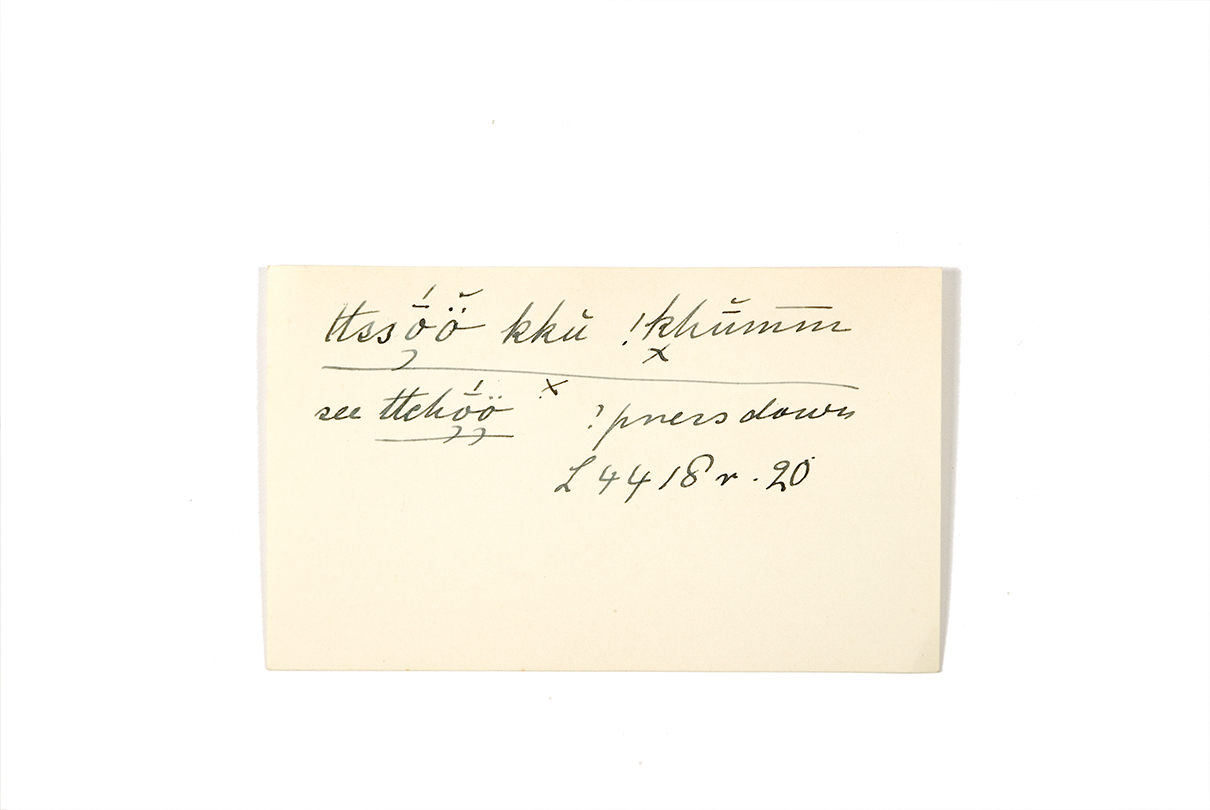 ttssṓö̆ kkŭ !khŭm̅m̅
see ttchṓö × ? press down
L 4418 r. 20